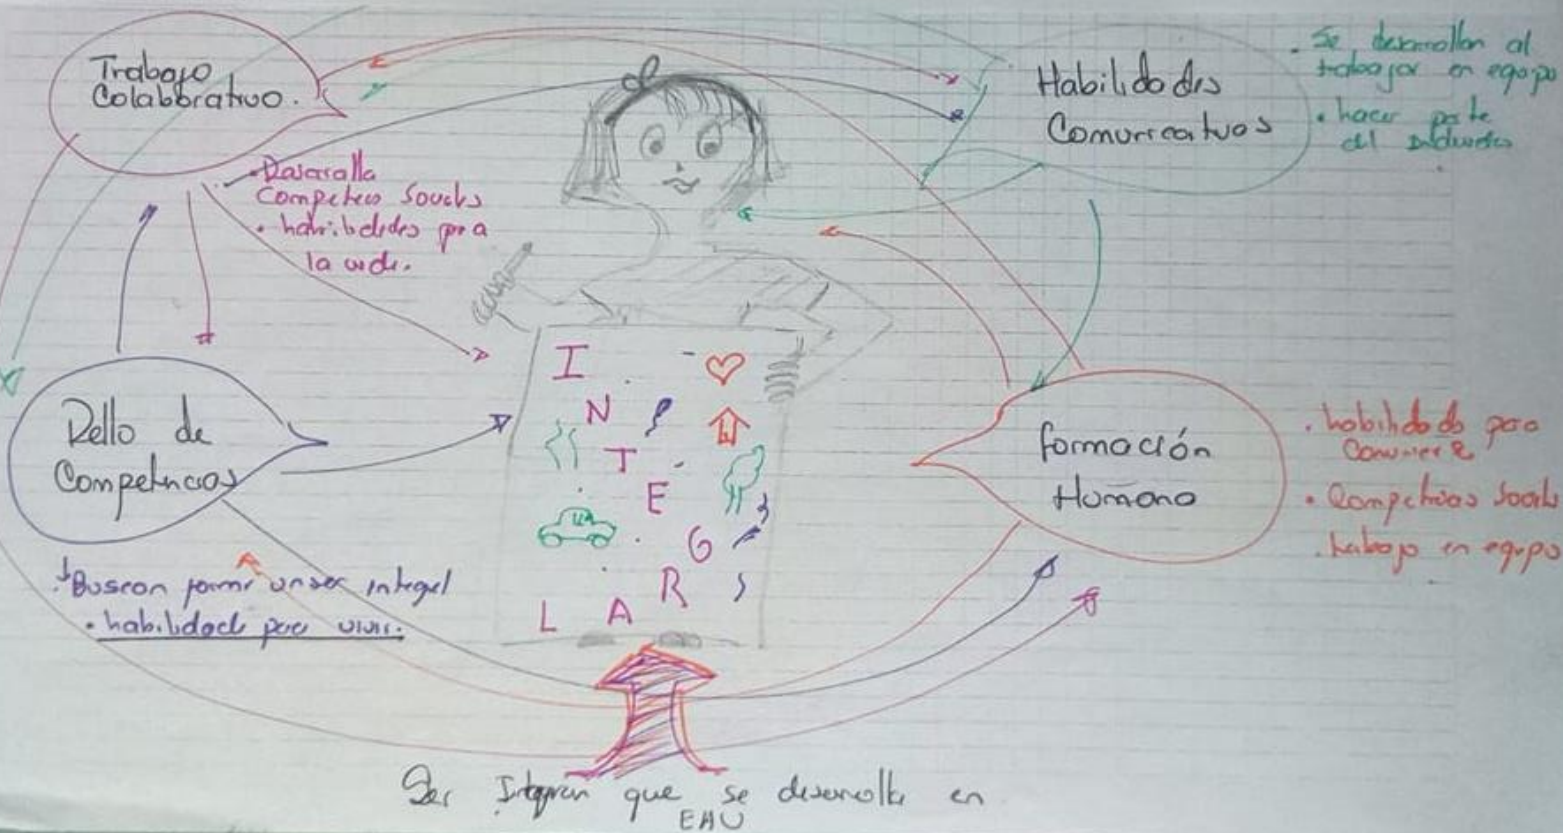 Trabajo
Colaborativo.
Desarolla
Competecs Sociales
• habilidades para
la vida.
Habilidades
Comunicativas
• Se desarrollan al
trabajar en equipo
• hacer parte
del
Dllo de
Competencias
Buscan formar un ser integral
• habilidad para vivir.
formación
Humana
• habilidades para
• Competencias Sociales
• trabajo en equipo
I
N
T
E
G
R
A
L
Ser que se desarrolla en
EAU